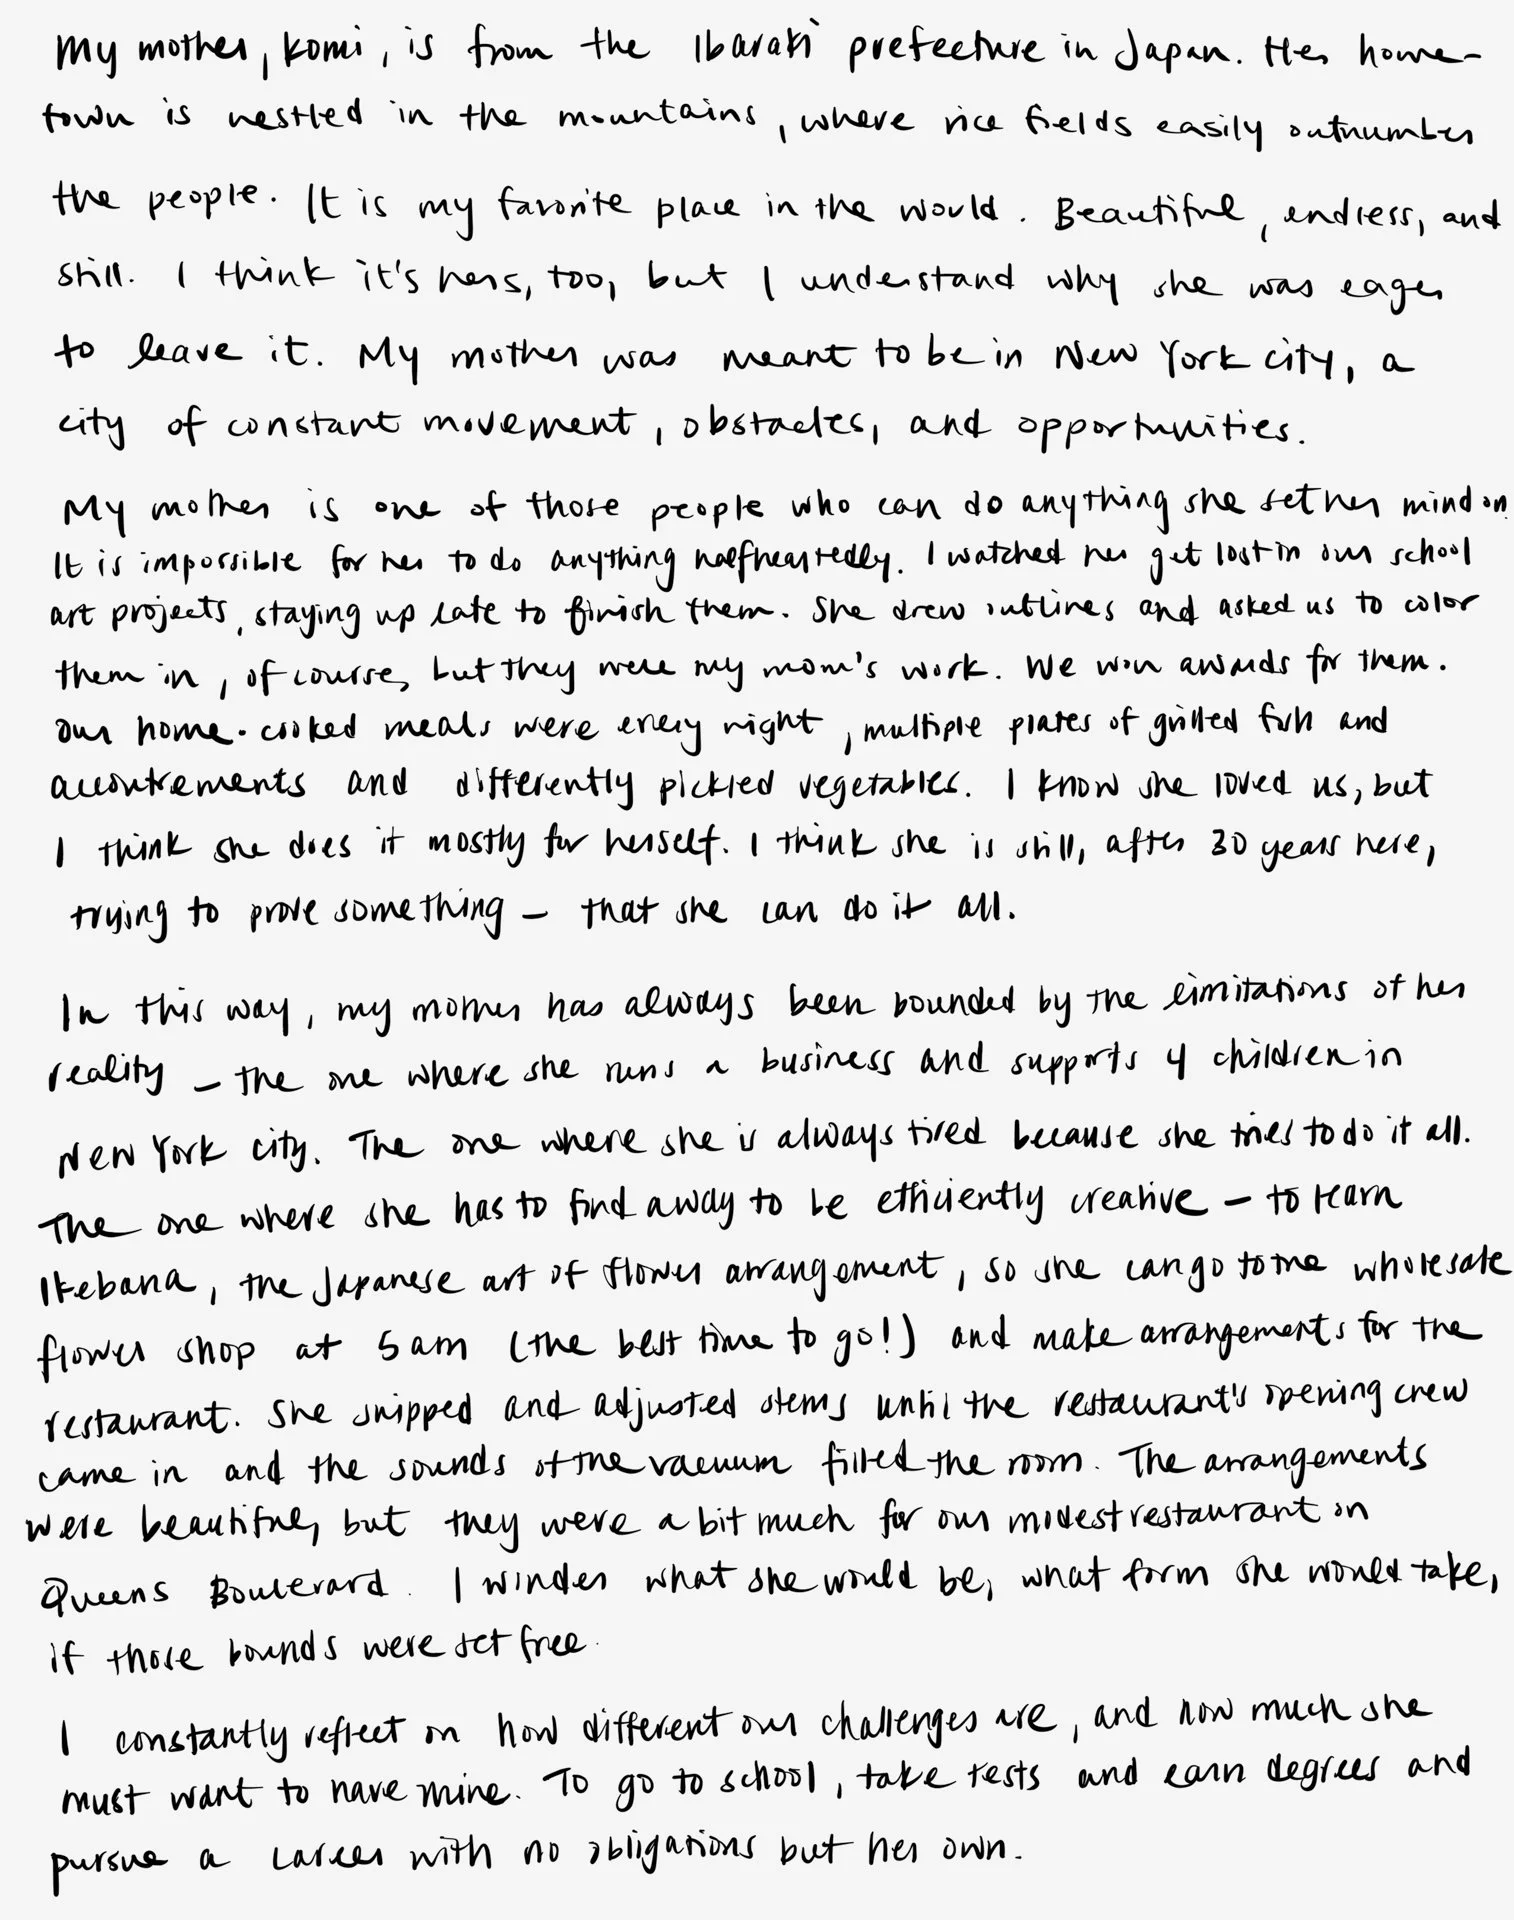 My mother, Komi, is from the Ibaraki prefecture in Japan. Her home-
town is nestled in the mountains, where rice fields easily outnumber
the people. It is my favorite place in the world. Beautiful, endless, and
still. I think it's hers, too, but I understand why she was eager
to leave it. My mother was meant to be in New York city, a
city of constant movement, obstacles, and opportunities.
My mother is one of those people who can do anything she set her mind on.
It is impossible for her to do anything halfheartedly. I watched her get lost in our school
art projects, staying up late to finish them. She drew outlines and asked us to color
them in, of course, but they were my mom's work. We won awards for them.
Our home-cooked meals were every night, multiple plates of grilled fish and
accoutrements and differently pickled vegetables. I know she loved us, but
I think she does it mostly for herself. I think she is still, after 30 years here,
trying to prove something – that she can do it all.
In this way, my mother has always been bounded by the limitations of her
reality – the one where she runs a business and supports 4 children in
New York city. The one where she is always tired because she tries to do it all.
The one where she has to find a way to be efficiently creative – to learn
Ikebana, the Japanese art of flower arrangement, so she can go to the wholesale
flower shop at 5am (the best time to go!) and make arrangements for the
restaurant. She snipped and adjusted stems until the restaurant's opening crew
came in and the sounds of the vacuum filled the room. The arrangements
were beautiful, but they were a bit much for our modest restaurant on
Queens Boulevard. I wonder what she would be, what form she would take,
if those bounds were set free.
I constantly reflect on how different our challenges are, and how much she
must want to have mine. To go to school, take tests and earn degrees and
pursue a career with no obligations but her own.